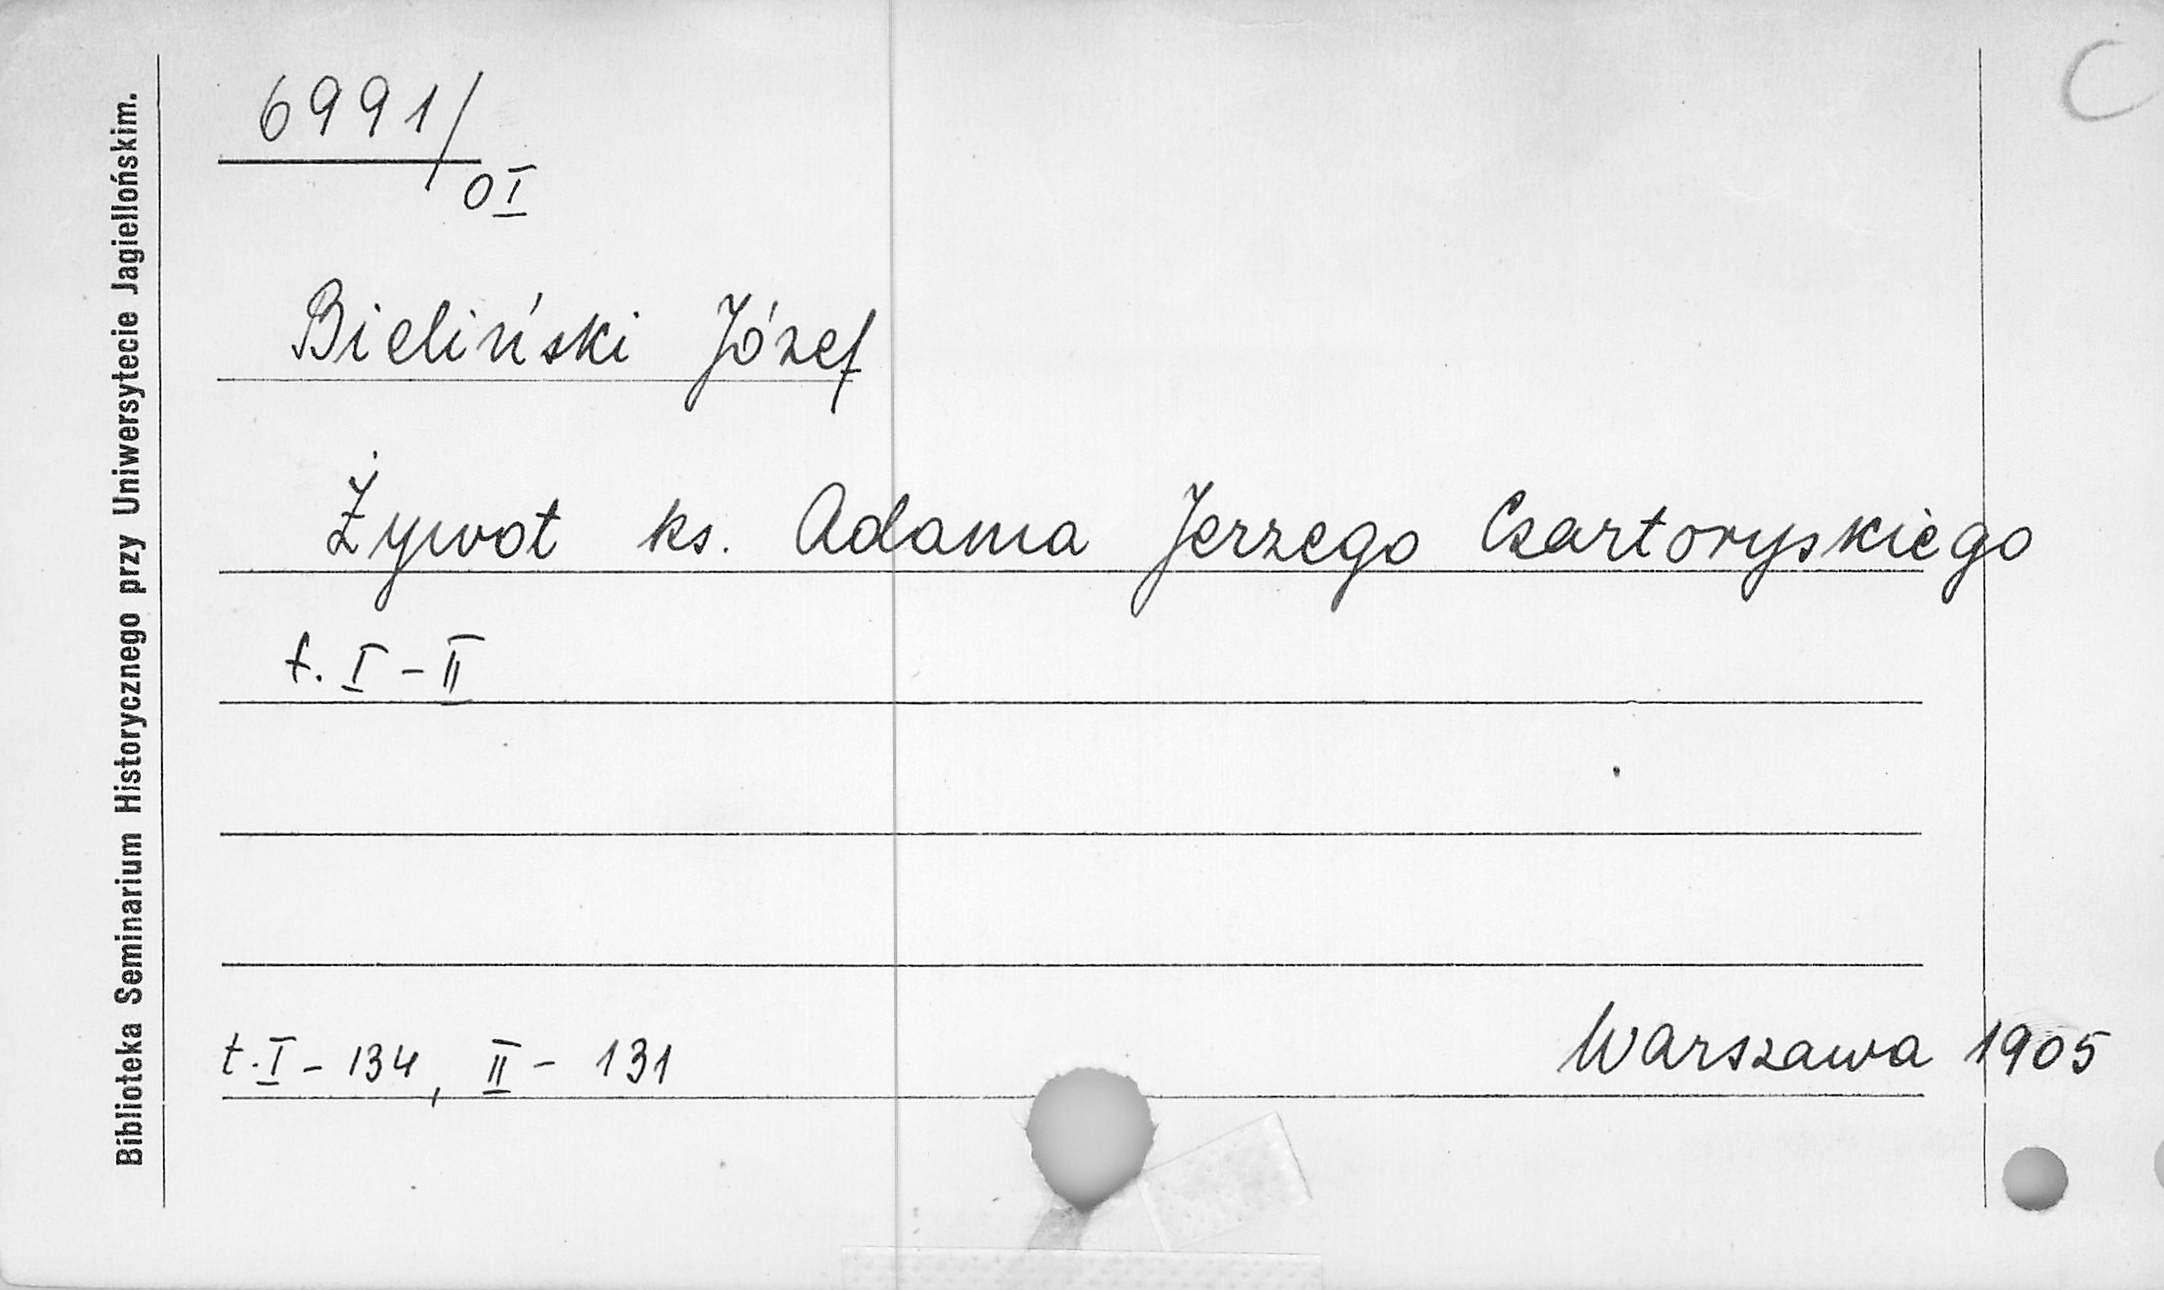 Biblioteka Seminarium Historycznego przy Uniwersytecie Jagiellońskim.
C
6991/
OI
Bieliński Józef
Żywot ks. Adama Jerzego Czartoryskiego
t. I - II
t. I - 134, II - 131
Warszawa 1905